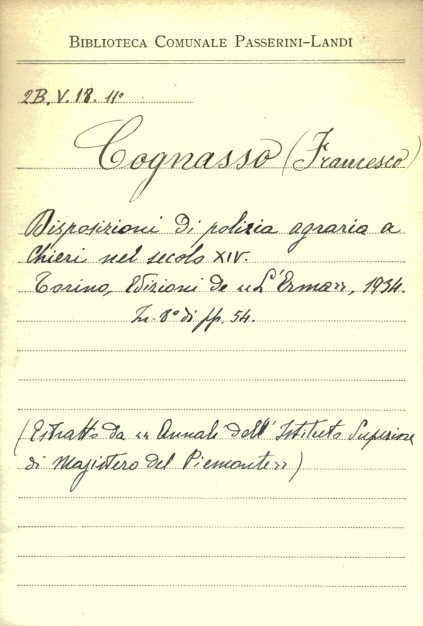 BIBLIOTECA COMUNALE PASSERINI-LANDI
2B. V. 18. 11º
Cognasso (Francesco)
Disposizioni di polizia agraria a
Chieri nel secolo XIV.
Torino, Edizioni de «L'Erma», 1934.
In-8º di pp. 54.
(Estratto da «Annali dell'Istituto Superiore
di Magistero del Piemonte»)